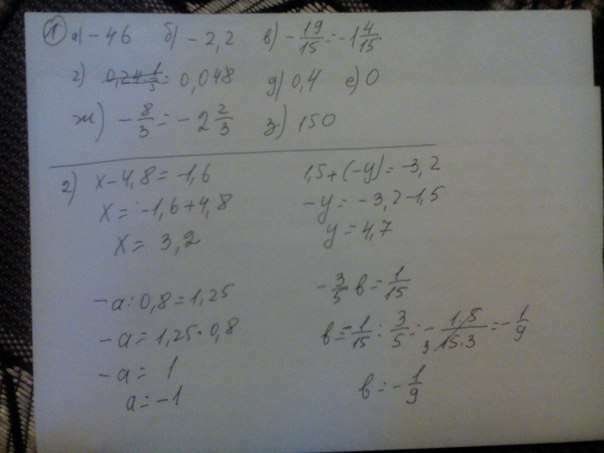 1 а) -46 б) -2,2 в) -19/15 = -1 4/15
г) 0,24·1/5 = 0,048 д) 0,4 е) 0
ж) -8/3 = -2 2/3 з) 150
2) x - 4,8 = -1,6
x = -1,6 + 4,8
x = 3,2
1,5 + (-y) = -3,2
-y = -3,2 - 1,5
y = 4,7
-a : 0,8 = 1,25
-a = 1,25 · 0,8
-a = 1
a = -1
-3/5 в = 1/15
в = -1/15 : 3/5 = -1·5/15·3 = -1/9
в = -1/9